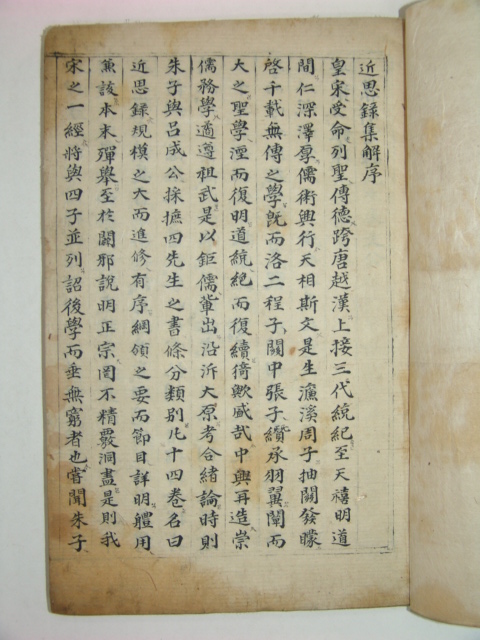 近思録集解序
皇宋受命列聖傳德跨唐越漢上接三代統紀至天禧明道
間仁深澤厚儒術興行天相斯文是生濂溪周子抽關發矇
啓千載無傳之學既而洛二程子關中張子纘承羽翼闡而
大之聖學湮而復明道統絶而復續猗歟盛哉中興再造崇
儒務學遹遵祖武是以鉅儒軰出沿泝大原考合緒論時則
朱子與呂成公採摭四先生之書條分類別凡十四卷名曰
近思録規模之大而進修有序綱領之要而節目詳明軆用
兼該本末殫舉至於闢邪說明正宗罔不精覈洞盡是則我
宋之一經將與四子並列詔後學而垂無窮者也嘗聞朱子